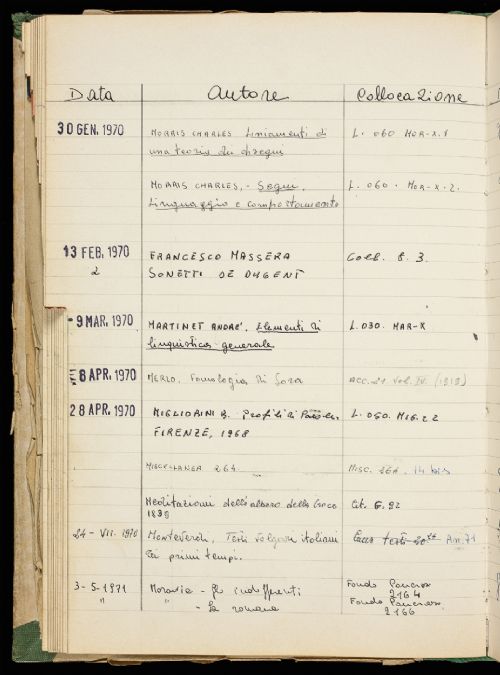 Data Autore Collocazione
30 GEN. 1970 MORRIS CHARLES Lineamenti di L. 060 MOR-X.1
una teoria dei segni
MORRIS CHARLES.- Segni, L. 060 . MOR-X-2.
Linguaggio e comportamento
13 FEB. 1970 FRANCESCO MASSERA Coll. 8. 3.
2 SONETTI DE DUGENT
-9 MAR. 1970 MARTINET ANDRE', Elementi di L. 030. MAR-X
linguistica generale
8 APR. 1970 MERLO, Fonologia di Sora ACC. 21 Vol. IV. (1919)
28 APR. 1970 MIGLIORINI B. Profili di Parole. L. 050. MIG. 22
FIRENZE, 1968
MISCELLANEA 264 MISC. 264. 14 bis
Meditazioni dell'albero della Croce Cit. G. 92
1839
24-VII-1970 Monteverdi, Testi volgari italiani Testi An.71
dei primi tempi.
3-5-1971 Moravia - Gli indifferenti Fondo Pancrazi
2164
" " - La romana Fondo Pancrazi
2166